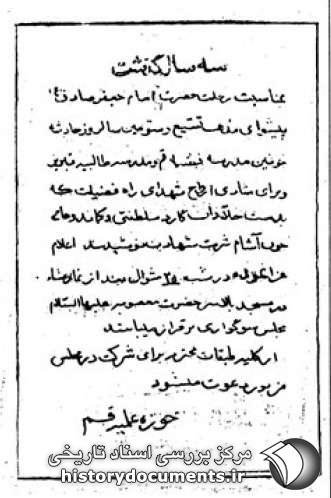 سه سال گذشت
بمناسبت رحلت حضرت امام جعفر صادق (ع)
پیشوای مذهب تشیع و سومین سالروز حادثه
خونین مدرسه فیضیه قم و مدرسه طالبیه تبریز
و برای شادی ارواح شهدای راه فضیلت که
بدست جلادان گارد سلطنتی و کماندوهای
خون آشام شربت شهادت نوشیدند اعلام
عزا نموده در شب ۲۵ شوال بعد از نماز عشاء
در مسجد بالاسر حضرت معصومه علیها السلام
مجلس سوگواری برقرار میباشد
از کلیه طبقات محترم برای شرکت در مجلس
مزبور دعوت میشود
حوزه علمیه قم
مرکز بررسی اسناد تاریخی
historydocuments.ir